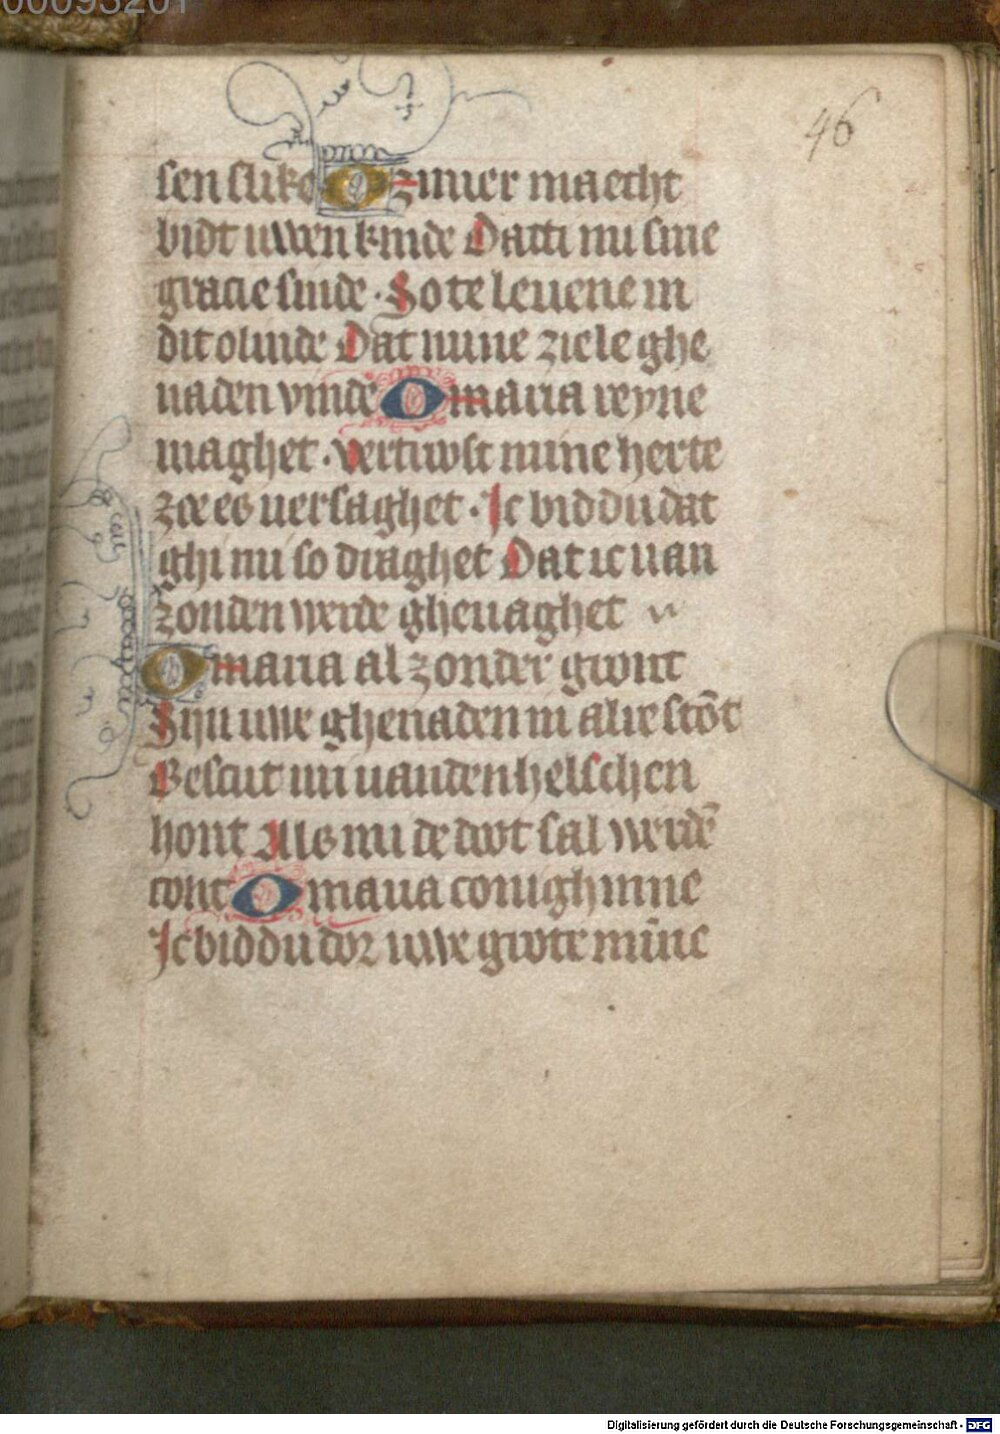 46
sen suko O zuuer maecht
bidt uwen kinde Datti mi sine
gracie sinde · So te leuene in
dit olinde Dat mine ziele ghe
naden vinde O maria reyne
maghet · vertrwst mine herte
zoe es uersaghet · Ic biddu dat
ghi mi so draghet Dat ic uan
zonden werde gheuaghet
O maria al zonder gront
Sijn uwe ghenaden in alre stōt
Bescut mi uanden helschen
hont Als mi de doot sal werdē
cont O maria conighinne
Ic biddu dor uwe grote mīne
Digitalisierung gefördert durch die Deutsche Forschungsgemeinschaft - DFG